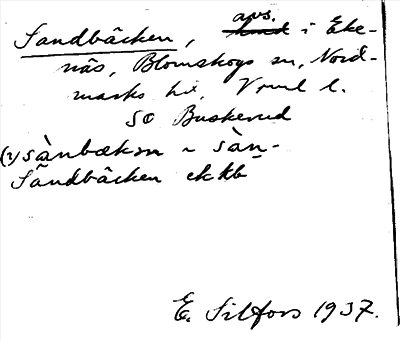 Sandbäcken, avs. i Eke-
näs, Blomskogs sn, Nord-
marks hd, Vrml l.
SO Buskerud
(3) sànbækən ~ sàn-
Sandbäcken ekkb
E. Silfors 1937.